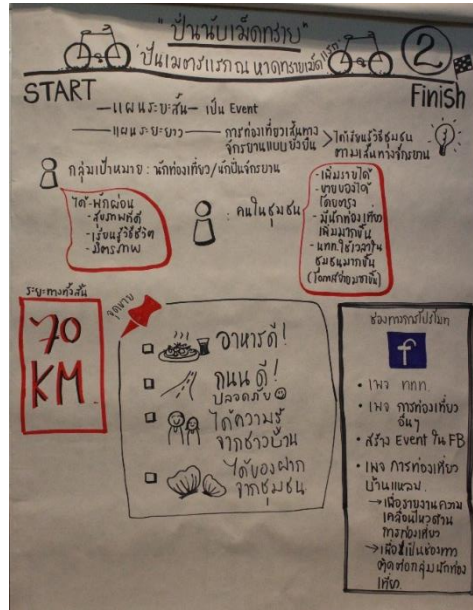 "ปั่นนับเม็ดทราย"
"ปั่นเมตรแรก ณ หาดทรายเม็ดแรก"
2
START
Finish
แผนระยะสั้น - เป็น Event
แผนระยะยาว
การท่องเที่ยวเส้นทาง
จักรยานแบบยั่งยืน
ได้เรียนรู้วิถีชุมชน
ตามเส้นทางจักรยาน
กลุ่มเป้าหมาย : นักท่องเที่ยว/นักปั่นจักรยาน
ได้ - พักผ่อน
- สุขภาพที่ดี
- เรียนรู้วิถีชีวิต
- มิตรภาพ
: คนในชุมชน
- เพิ่มรายได้
- ขายของได้
โดยตรง
- มีนักท่องเที่ยว
เพิ่มมากขึ้น
- นทท.ใช้เวลาใน
ชุมชนมากขึ้น
ระยะทางทั้งสิ้น
70
KM.
จุดขาย
อาหารดี!
ถนนดี!
ปลอดภัย
ได้ความรู้
จากชาวบ้าน
ได้ของฝาก
จากชุมชน
ช่องทางการโปรโมท
f
• เพจ ททท.
• เพจ การท่องเที่ยว
อื่นๆ
• สร้าง Event ใน FB
• เพจ การท่องเที่ยว
บ้านแหลม.
→ เพื่อรายงานความ
เคลื่อนไหวด้าน
การท่องเที่ยว
→ เพื่อเป็นช่องทาง
ติดต่อกลุ่มนักท่อง
เที่ยว.